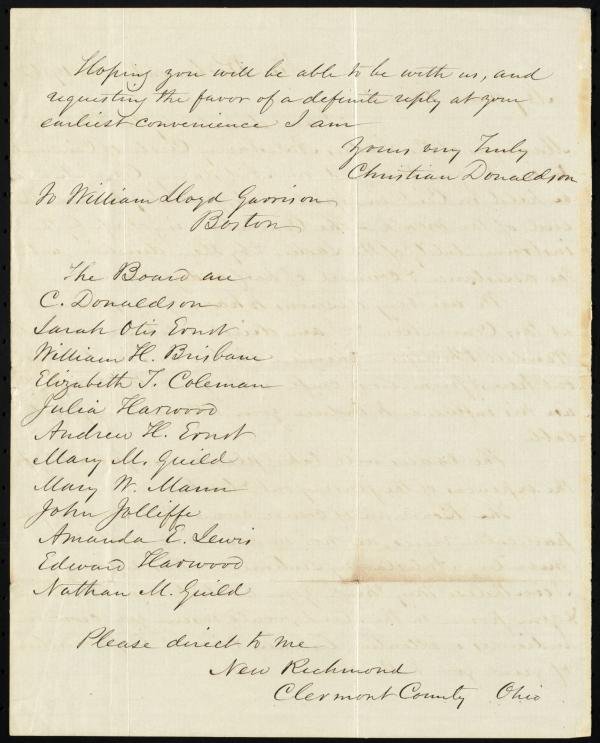 Hoping you will be able to be with us, and
requesting the favor of a definite reply at your
earliest convenience I am
Yours very Truly
Christian Donaldson
To William Lloyd Garrison
Boston
The Board are
C. Donaldson
Sarah Otis Ernst
William H. Brisbane
Elizabeth T. Coleman
Julia Harwood
Andrew H. Ernst
Mary M. Guild
Mary W. Mann
John Jolliffe
Amanda E. Lewis
Edward Harwood
Nathan M. Guild
Please direct to me
New Richmond
Clermont County Ohio